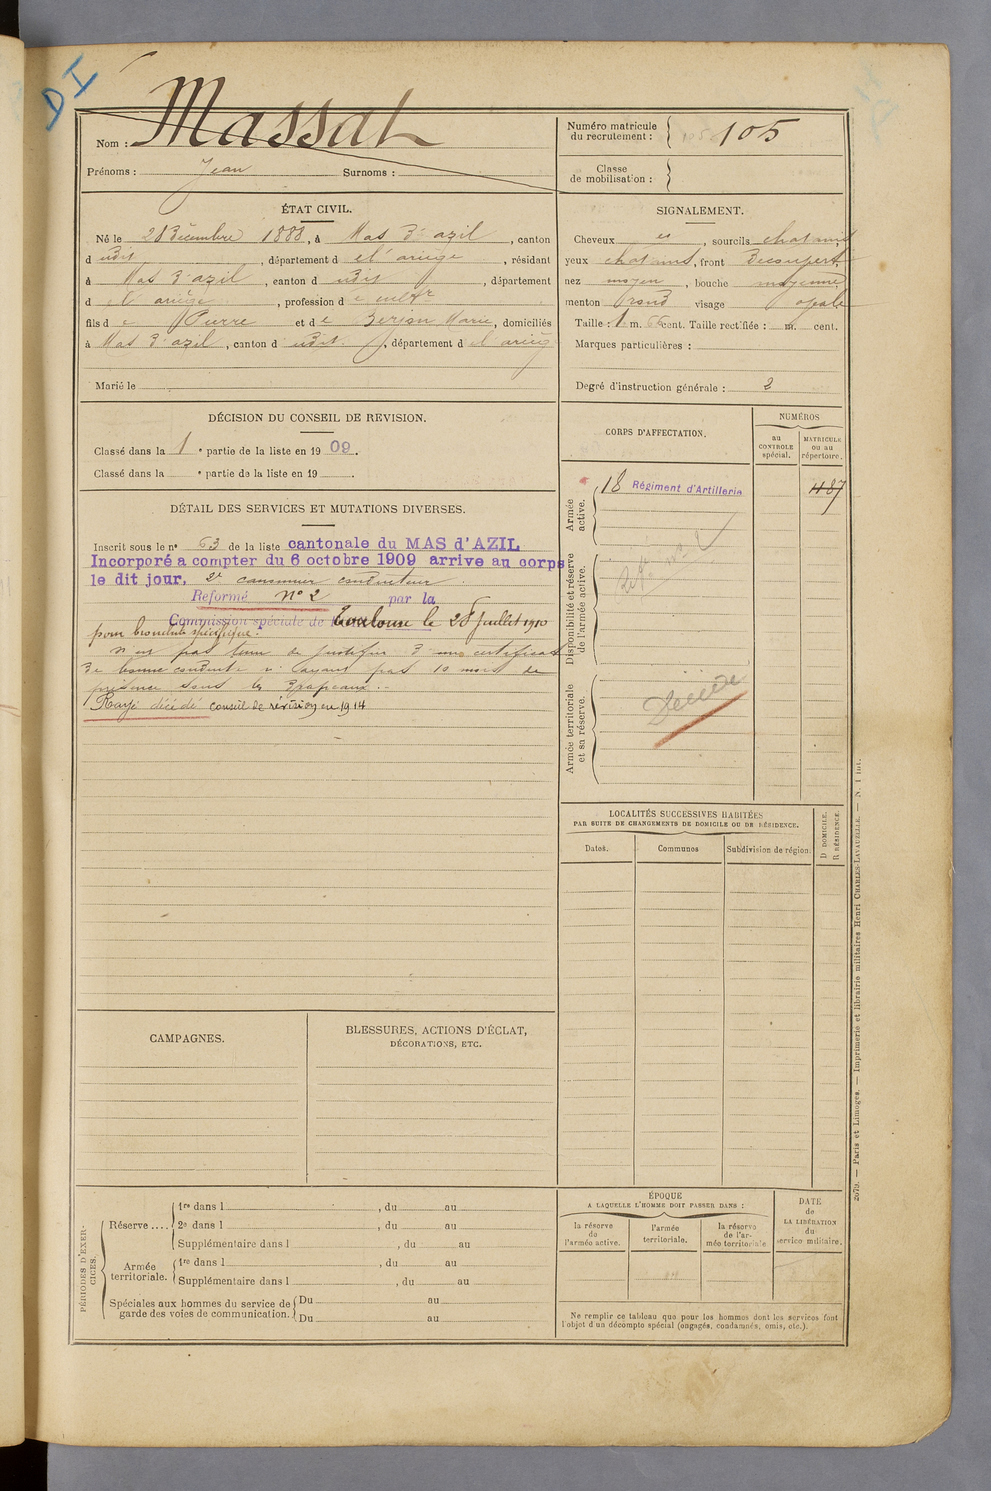 DI
Nom : Massat
Prénoms : Jean Surnoms :
Numéro matricule du recrutement : 105
Classe de mobilisation :
ÉTAT CIVIL.
Né le 28 Décembre 1888, à Mas d'azil, canton
d udit, département d el'ariège, résidant
à Mas d'azil, canton d udit, département
d el'ariège, profession d e cultr
fils d e Pierre et d e Marie, domiciliés
à Mas d'azil, canton d udit, département d el'ariège
Marié le
SIGNALEMENT.
Cheveux et, sourcils chatains
yeux chatains, front Découvert
nez moyen, bouche moyenne
menton rond visage ovale
Taille : 1 m. 66 cent. Taille rectifiée : m. cent.
Marques particulières :
Degré d'instruction générale : 2
DÉCISION DU CONSEIL DE REVISION.
Classé dans la 1e partie de la liste en 1909.
Classé dans la e partie de la liste en 19 .
CORPS D'AFFECTATION.
NUMÉROS
au CONTROLE spécial.
MATRICULE ou au répertoire.
Armée active.
18 Régiment d'Artillerie
1187
Disponibilité et réserve de l'armée active.
Réf. n° 2
Armée territoriale et sa réserve.
Décédé
DÉTAIL DES SERVICES ET MUTATIONS DIVERSES.
Inscrit sous le n° 63 de la liste cantonale du MAS d'AZIL
Incorporé a compter du 6 octobre 1909 arrive au corps
le dit jour, 2e canonnier conducteur.
Reformé n° 2 par la
Commission spéciale de Toulouse le 28 Juillet 1910
pour bronchite spécifique.
N'est pas tenu de justifier d'un certificat
de bonne conduite n'ayant pas 10 mois de
présence sous les drapeaux.
Rayé décédé conseil de révision en 1914
LOCALITÉS SUCCESSIVES HABITÉES
PAR SUITE DE CHANGEMENTS DE DOMICILE OU DE RÉSIDENCE.
Dates. Communes Subdivision de région.
D DOMICILE.
R RÉSIDENCE.
CAMPAGNES.
BLESSURES, ACTIONS D'ÉCLAT,
DÉCORATIONS, ETC.
PÉRIODES D'EXERCICES.
Réserve .... 1re dans l , du au
2e dans l , du au
Supplémentaire dans l , du au
Armée territoriale. 1re dans l , du au
Supplémentaire dans l , du au
Spéciales aux hommes du service de garde des voies de communication. Du au
Du au
ÉPOQUE
A LAQUELLE L'HOMME DOIT PASSER DANS :
la réserve de l'armée active.
l'armée territoriale.
la réserve de l'armée territoriale
DATE de LA LIBÉRATION du service militaire.
Ne remplir ce tableau que pour les hommes dont les services font
l'objet d'un décompte spécial (engagés, condamnés, omis, etc.).
2679. — Paris et Limoges. — Imprimerie et librairie militaires Henri CHARLES-LAVAUZELLE. — N. 1 int.